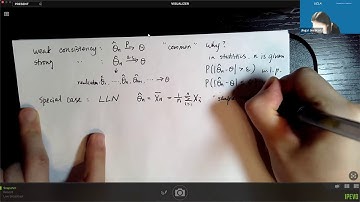 VISUALIZER
HELP
weak consistency: θ̂n →P θ "common" Why?
strong " : θ̂n → θ in statistics, n is given
realization θ̂1, ..., θ̂n, ... → θ P(|θ̂n-θ| > ε) w.l.p.
P(|θ̂n-θ|
special case: LLN θ̂n = X̄n = 1/n Σ Xi
IPEVO